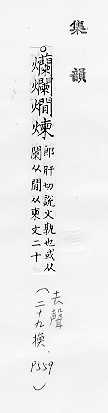 集韻
○爤爛燗煉
郎肝切說文孰也或从
闌从閒从柬文二十
(去聲
二十九換、P559)